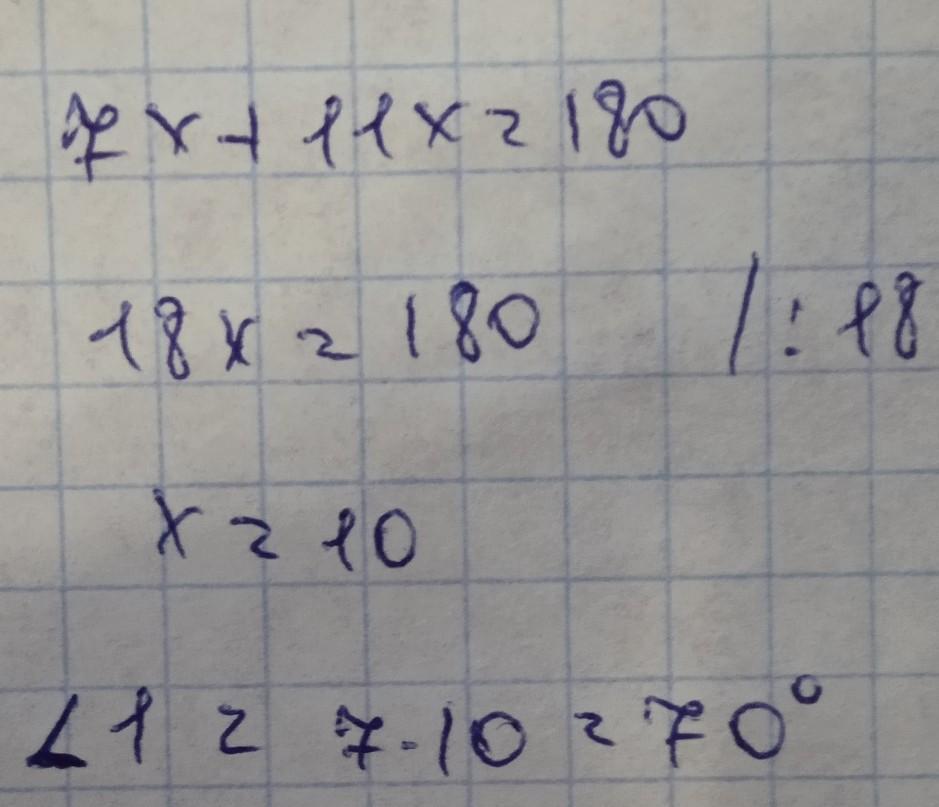 7x+11x=180
18x=180 /:18
x=10
∠1=7·10=70°